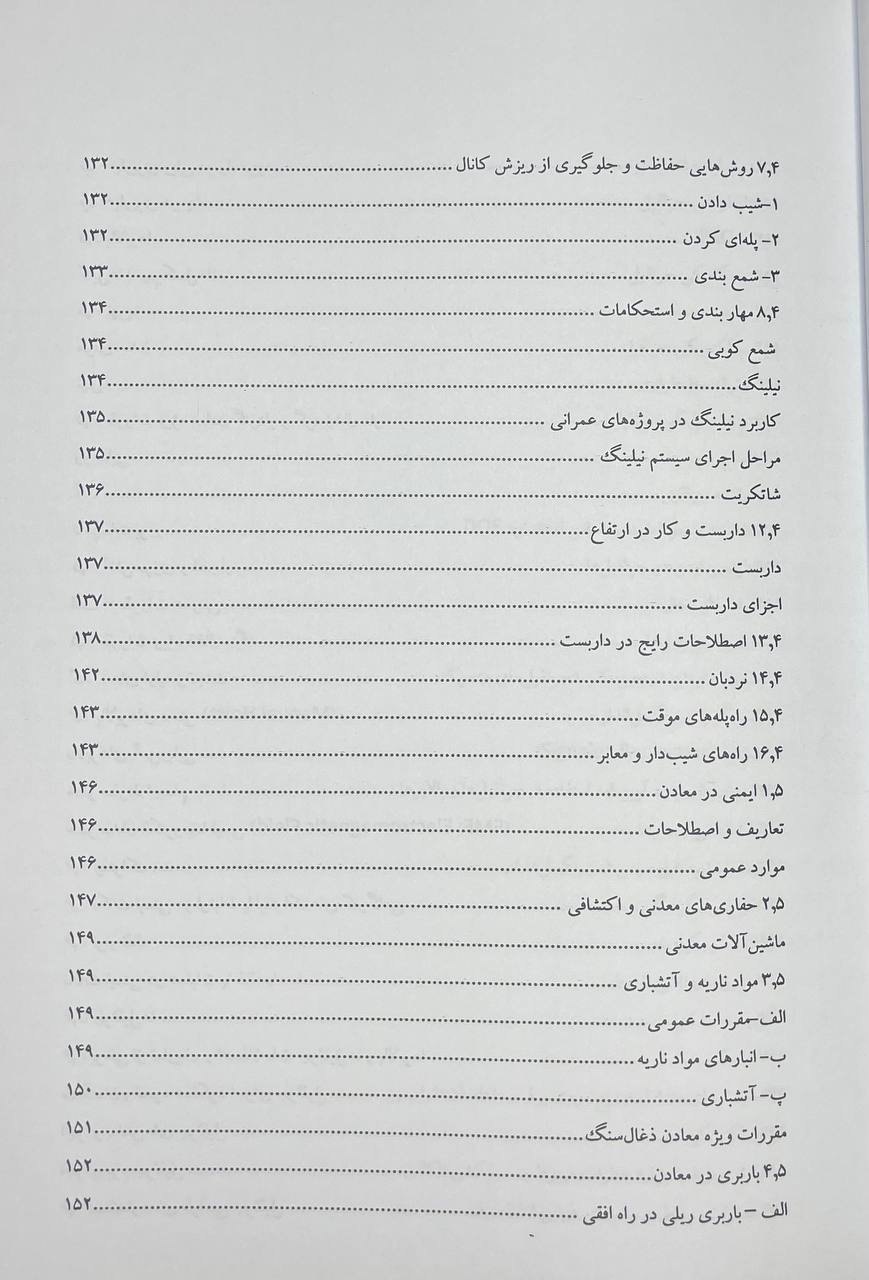 ۷,۴ روش‌هایی حفاظت و جلوگیری از ریزش کانال ..........۱۳۲
۱-شیب دادن ..........۱۳۲
۲- پله‌ای کردن ..........۱۳۲
۳- شمع بندی ..........۱۳۳
۸,۴ مهار بندی و استحکامات ..........۱۳۴
شمع کوبی ..........۱۳۴
نیلینگ..........۱۳۴
کاربرد نیلینگ در پروژه‌های عمرانی ..........۱۳۵
مراحل اجرای سیستم نیلینگ ..........۱۳۵
شاتکریت ..........۱۳۶
۱۲,۴ داربست و کار در ارتفاع..........۱۳۷
داربست ..........۱۳۷
اجزای داربست ..........۱۳۷
۱۳,۴ اصطلاحات رایج در داربست ..........۱۳۸
۱۴,۴ نردبان..........۱۴۲
۱۵,۴ راه‌پله‌های موقت ..........۱۴۳
۱۶,۴ راه‌های شیب‌دار و معابر ..........۱۴۳
۱,۵ ایمنی در معادن ..........۱۴۶
تعاریف و اصطلاحات ..........۱۴۶
موارد عمومی ..........۱۴۶
۲,۵ حفاری‌های معدنی و اکتشافی ..........۱۴۷
ماشین‌آلات معدنی ..........۱۴۹
۳,۵ مواد ناریه و آتشباری ..........۱۴۹
الف-مقررات عمومی ..........۱۴۹
ب- انبارهای مواد ناریه ..........۱۴۹
پ- آتشباری ..........۱۵۰
مقررات ویژه معادن ذغال‌سنگ..........۱۵۱
۴,۵ باربری در معادن..........۱۵۲
الف – باربری ریلی در راه افقی ..........۱۵۲